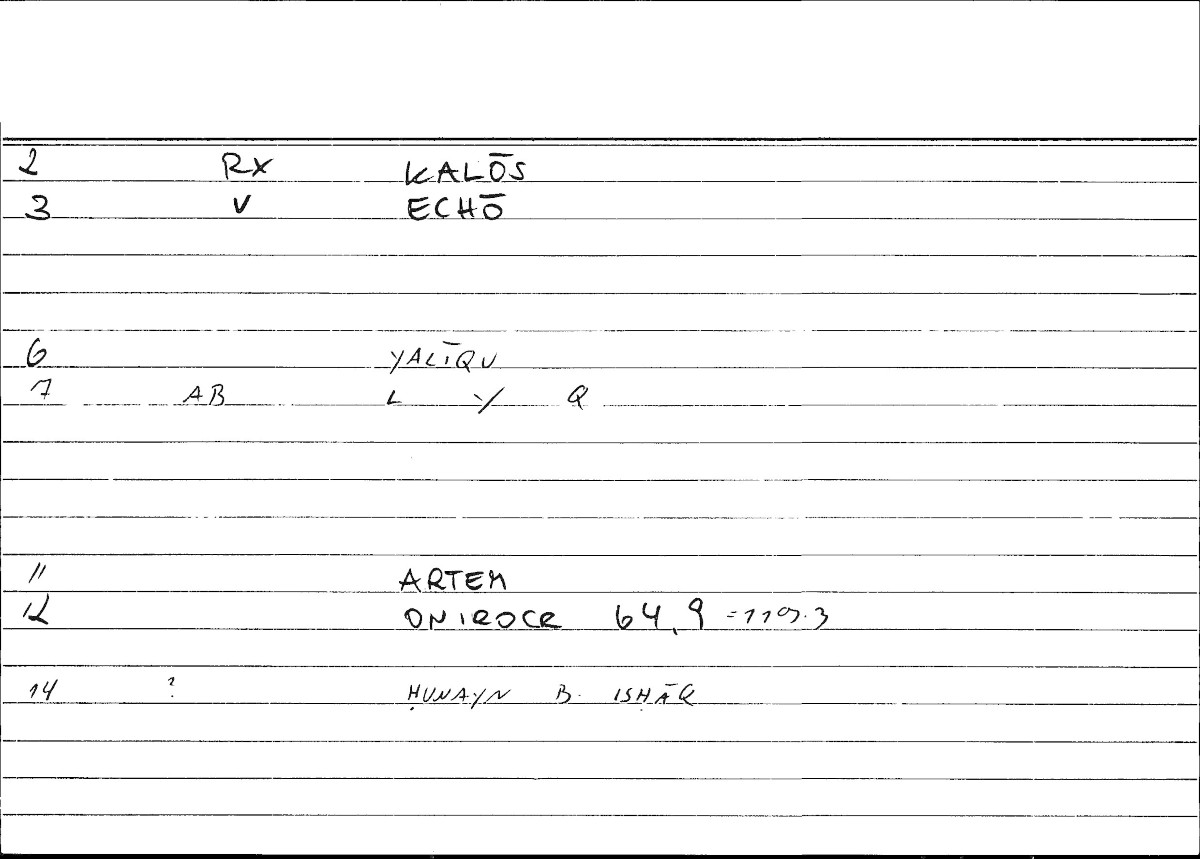 2 RX KALŌS
3 V ECHŌ
6 YALĪQU
7 AB L Y Q
11 ARTEM
12 ONIROCR 64,9 =119.3
14 ? ḤUNAYN B. ISḤĀQ